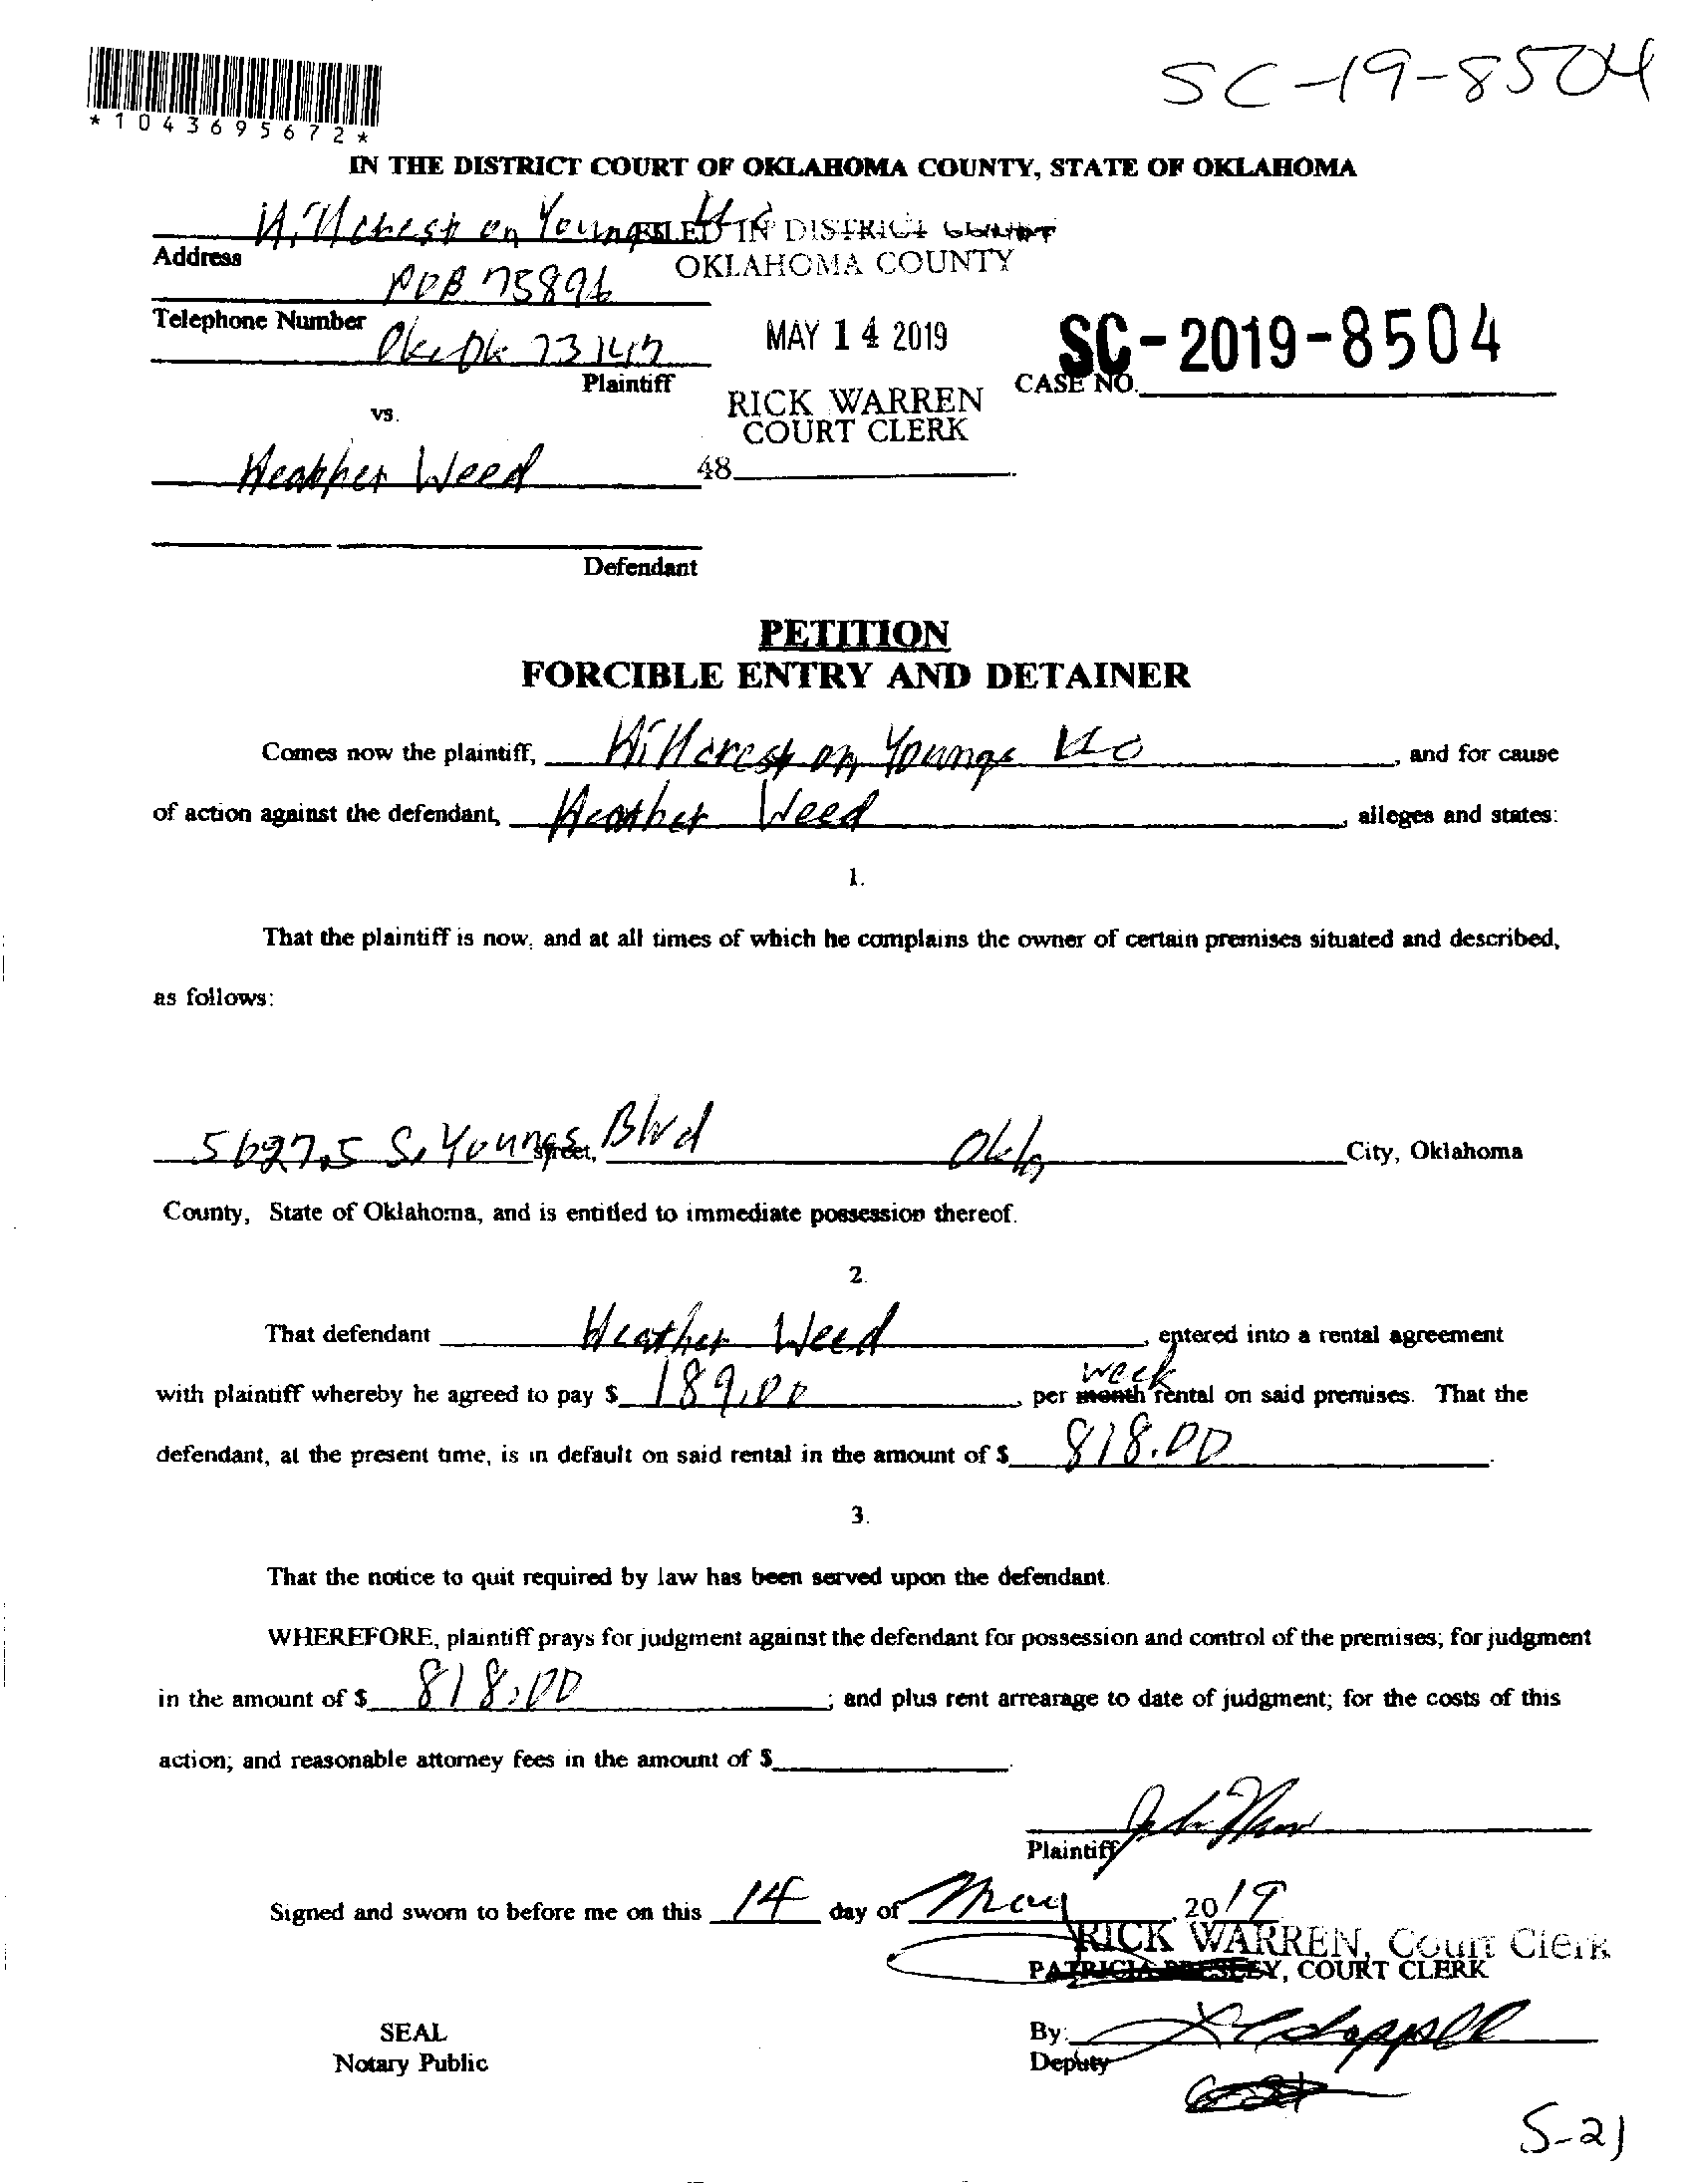 SC-19-8504
*1043695672*
IN THE DISTRICT COURT OF OKLAHOMA COUNTY, STATE OF OKLAHOMA
Hillcrest on Youngs LLC
FILED IN DISTRICT COURT
Address
OKLAHOMA COUNTY
POB 75896
Telephone Number
MAY 14 2019
SC-2019-8504
Okc Ok 73147
Plaintiff
CASE NO.
RICK WARREN
vs.
COURT CLERK
Heather Weed
48
Defendant
PETITION
FORCIBLE ENTRY AND DETAINER
Comes now the plaintiff, Hillcrest on Youngs LLC, and for cause
of action against the defendant, Heather Weed, alleges and states:
1.
That the plaintiff is now, and at all times of which he complains the owner of certain premises situated and described,
as follows:
5627.5 S. Youngs Blvd street, Okla City, Oklahoma
County, State of Oklahoma, and is entitled to immediate possession thereof.
2.
That defendant Heather Weed, entered into a rental agreement
week
with plaintiff whereby he agreed to pay $ 189.00, per month rental on said premises. That the
defendant, at the present time, is in default on said rental in the amount of $ 818.00.
3.
That the notice to quit required by law has been served upon the defendant.
WHEREFORE, plaintiff prays for judgment against the defendant for possession and control of the premises; for judgment
in the amount of $ 818.00; and plus rent arrearage to date of judgment; for the costs of this
action; and reasonable attorney fees in the amount of $.
Plaintiff
Signed and sworn to before me on this 14 day of May, 2019
RICK WARREN, Court Clerk
PATRICIA PRESLEY, COURT CLERK
SEAL
By:
Notary Public
Deputy
5-21